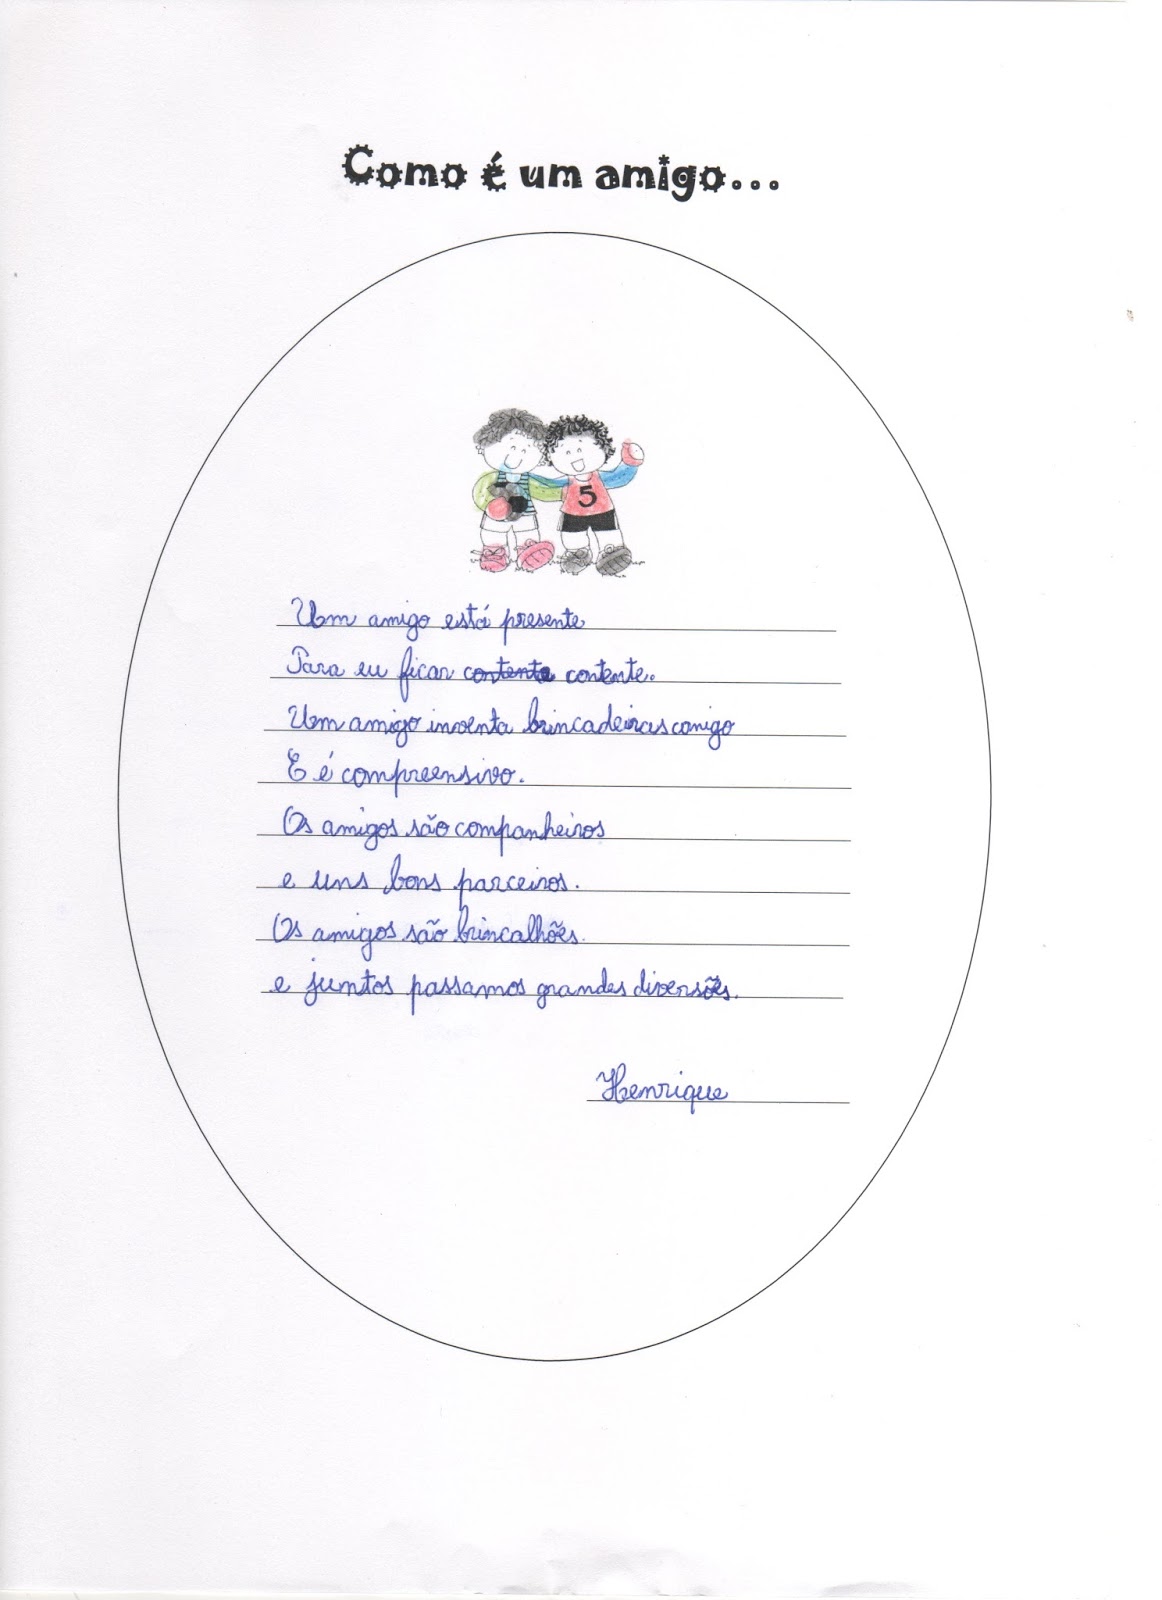 Como é um amigo...
5
Um amigo está presente
Para eu ficar contente contente.
Um amigo inventa brincadeiras comigo
E é compreensivo.
Os amigos são companheiros
e uns bons parceiros.
Os amigos são brincalhões
e juntos passamos grandes diversões.
Henrique